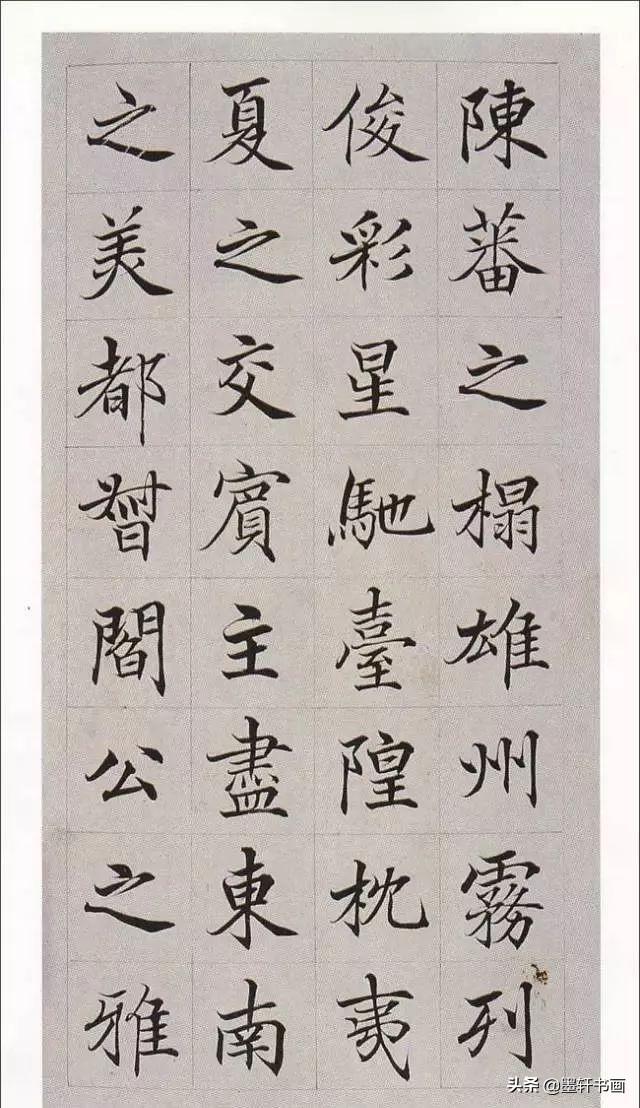 陳蕃之榻雄州霧列
俊彩星馳臺隍枕夷
夏之交賓主盡東南
之美都督閻公之雅
头条 @墨轩书画